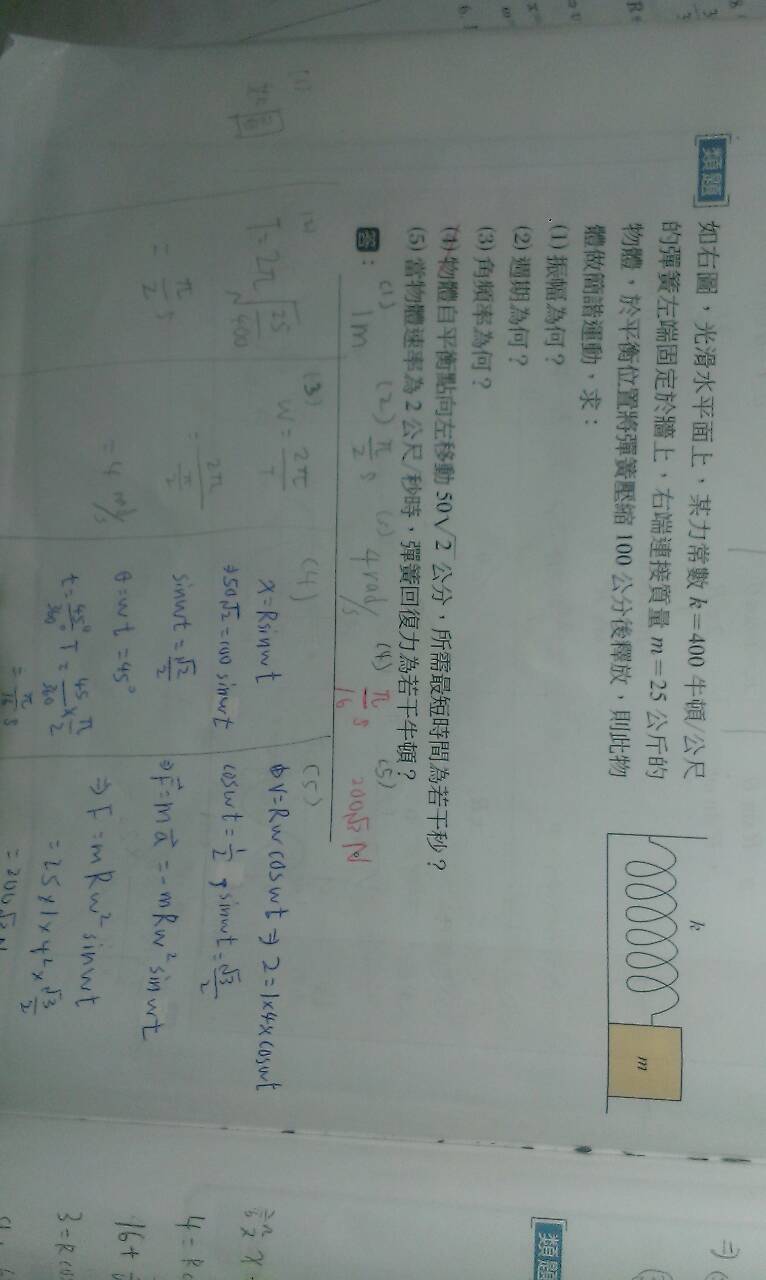 [類題] 如右圖，光滑水平面上，某力常數 k＝400 牛頓/公尺
的彈簧左端固定於牆上，右端連接質量 m＝25 公斤的
物體，於平衡位置將彈簧壓縮 100 公分後釋放，則此物
體做簡諧運動，求：
(1) 振幅為何？
(2) 週期為何？
(3) 角頻率為何？
(4) 物體自平衡點向左移動 50√2 公分，所需最短時間為若干秒？
(5) 當物體速率為 2 公尺/秒時，彈簧回復力為若干牛頓？
k
m
答：
(1) 1m (2) π/2 s 4 rad/s (4) π/16 s (5) 200√3 N
T = 2π√(25/400)
= π/2 s
(3)
w = 2π/T
= 2π/(π/2)
= 4 rad/s
(4)
x = R sinwt
⇒ 50√2 = 100 sinwt
sinwt = √2/2
θ = wt = 45°
t = 45°/360° T = 45/360 × π/2
= π/16 s
(5)
V = Rw coswt ⇒ 2 = 1×4×coswt
coswt = 1/2 , sinwt = √3/2
⇒ F = ma = -mRw² sinwt
⇒ F = mRw² sinwt
= 25×1×4²×√3/2
= 200√3 N
[類題
4 = R
16 +
3 = R